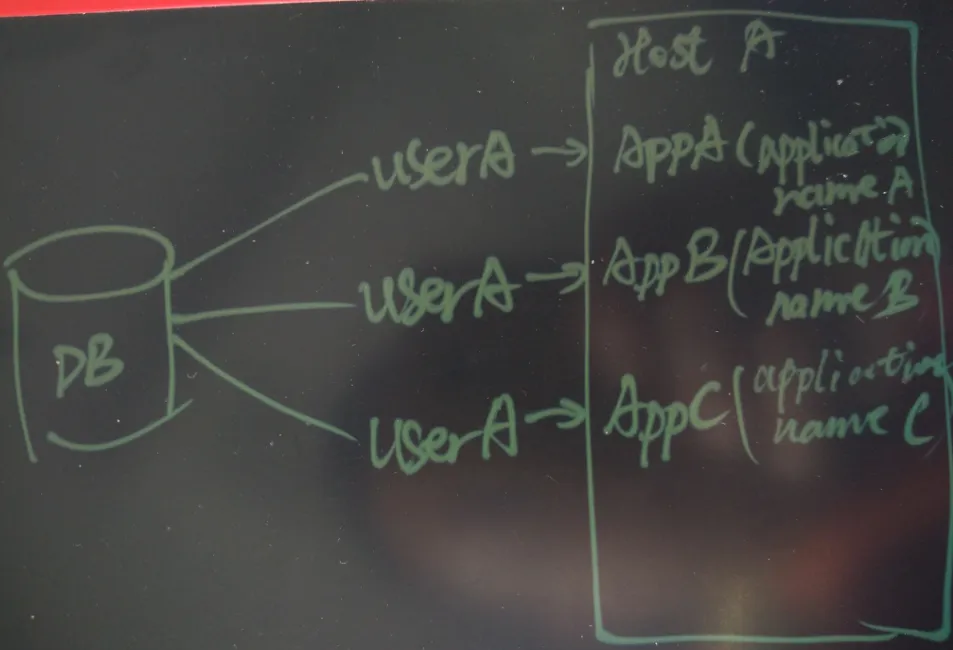 Host A
userA → AppA (application
name A
userA → AppB (Application
name B
DB
userA → AppC (application
name C